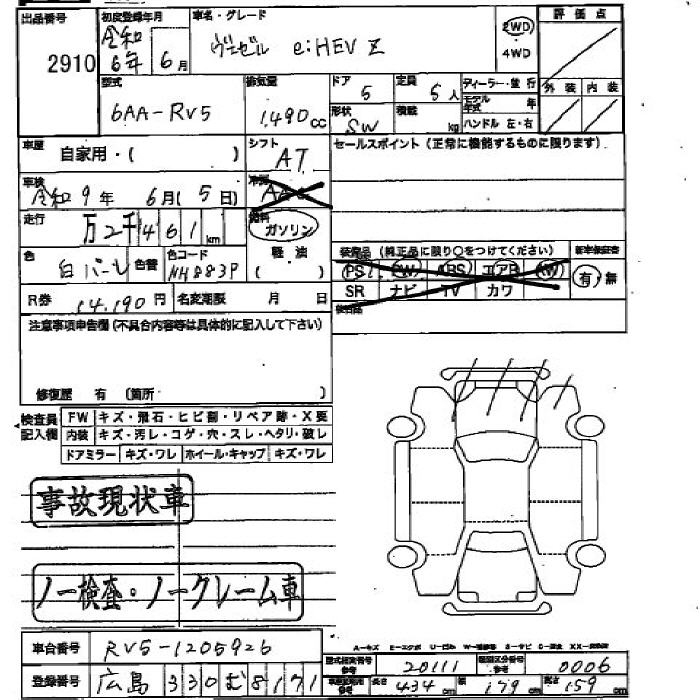 出品番号 2910
初度登録年月 令和6年 6月
車名・グレード ヴェゼル e:HEV Z
2WD
・4WD
評価点
外装 内装
型式 6AA-RV5
排気量 1,490cc
ドア 5
定員 5人
ディーラー・並行
形状 SW
積載 kg
モデル年式 年
ハンドル 左・右
車歴 自家用・( )
シフト AT
セールスポイント(正常に機能するものに限ります)
車検 令和9年 6月(5日)
冷房
走行 万2千461km
燃料 ガソリン
軽・油
( )
色 白パール
色替
色コード NH883P
装備品(純正品に限り○をつけてください)
新車保証書
PS PW ABS エアB AW
有・無
SR ナビ TV カワ
R券 14,190円
名変期限 月 日
注意事項申告欄(不具合内容等は具体的に記入して下さい)
修復歴 有 (箇所 )
検査員記入欄
FW キズ・飛石・ヒビ割・リペア跡・X要
内装 キズ・汚レ・コゲ・穴・スレ・ヘタリ・破レ
ドアミラー キズ・ワレ ホイール・キャップ キズ・ワレ
事故現状車
ノー検査・ノークレーム車
車台番号 RV5-1205926
登録番号 広島 330 む 8171
型式指定番号 参考 20111
類別区分番号 参考 0006
長さ 434cm
幅 179cm
高さ 159cm